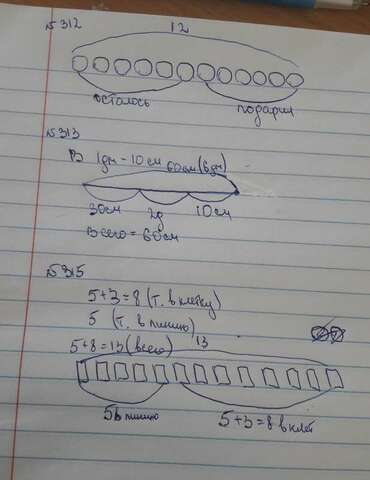 №312
12
осталось подарил
№313
В 1дм - 10см 60см(6дм)
30см 2д 10см
Всего = 60см
№315
5+3=8 (т. в клетку)
5 (т. в линию)
5+8=13 (всего) 13
5 в линию 5+3=8 в клет